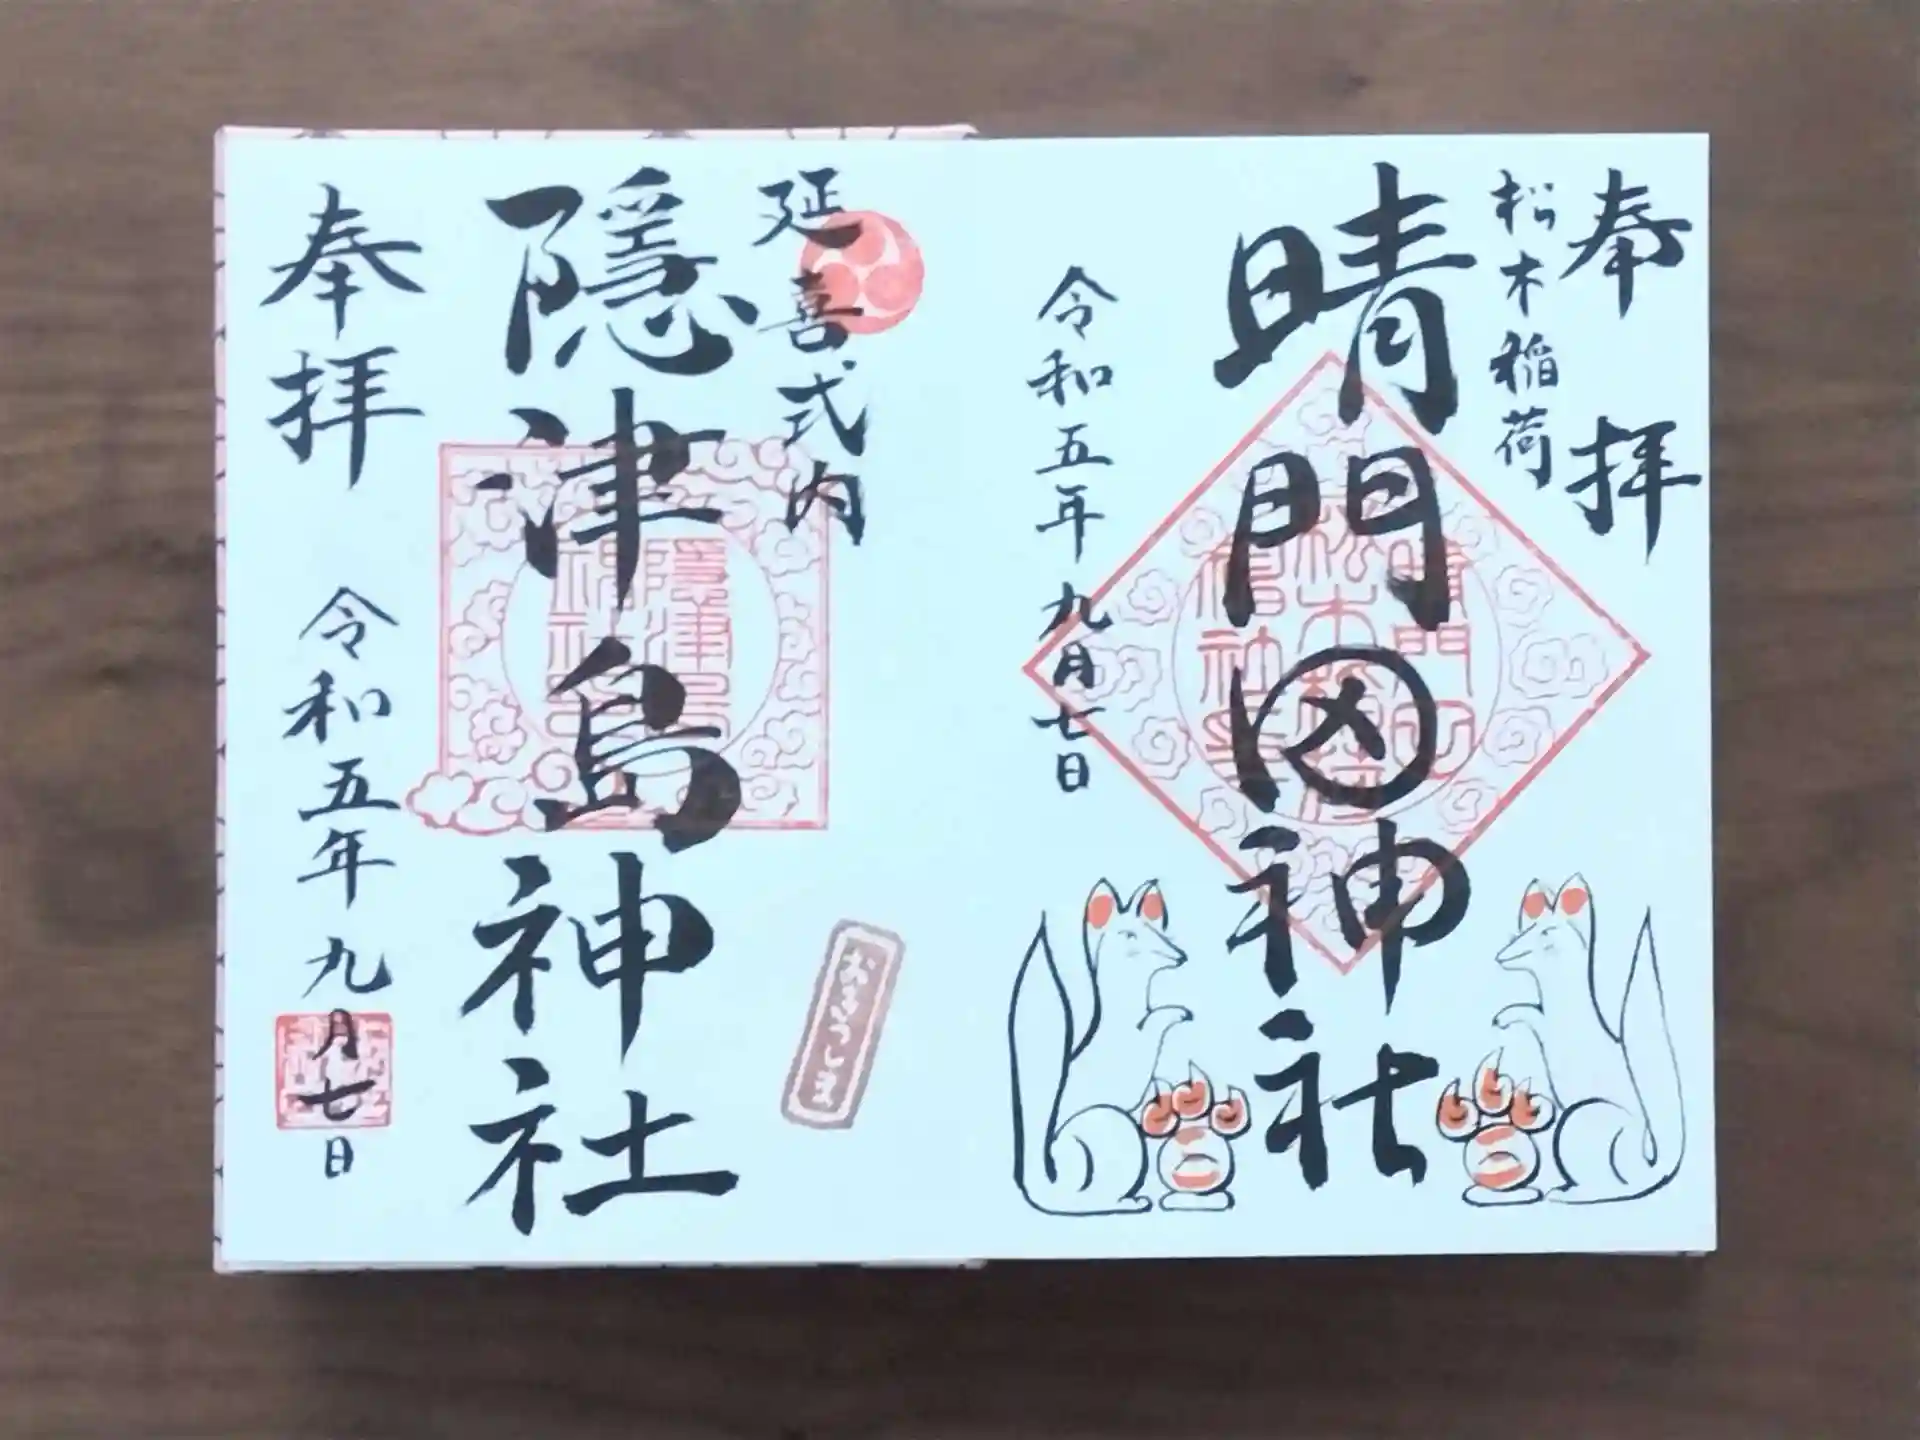 奉拝
松木稲荷
晴門田神社
令和五年九月七日
延喜式内
隱津島神社
おきつしま
奉拝
令和五年九月七日